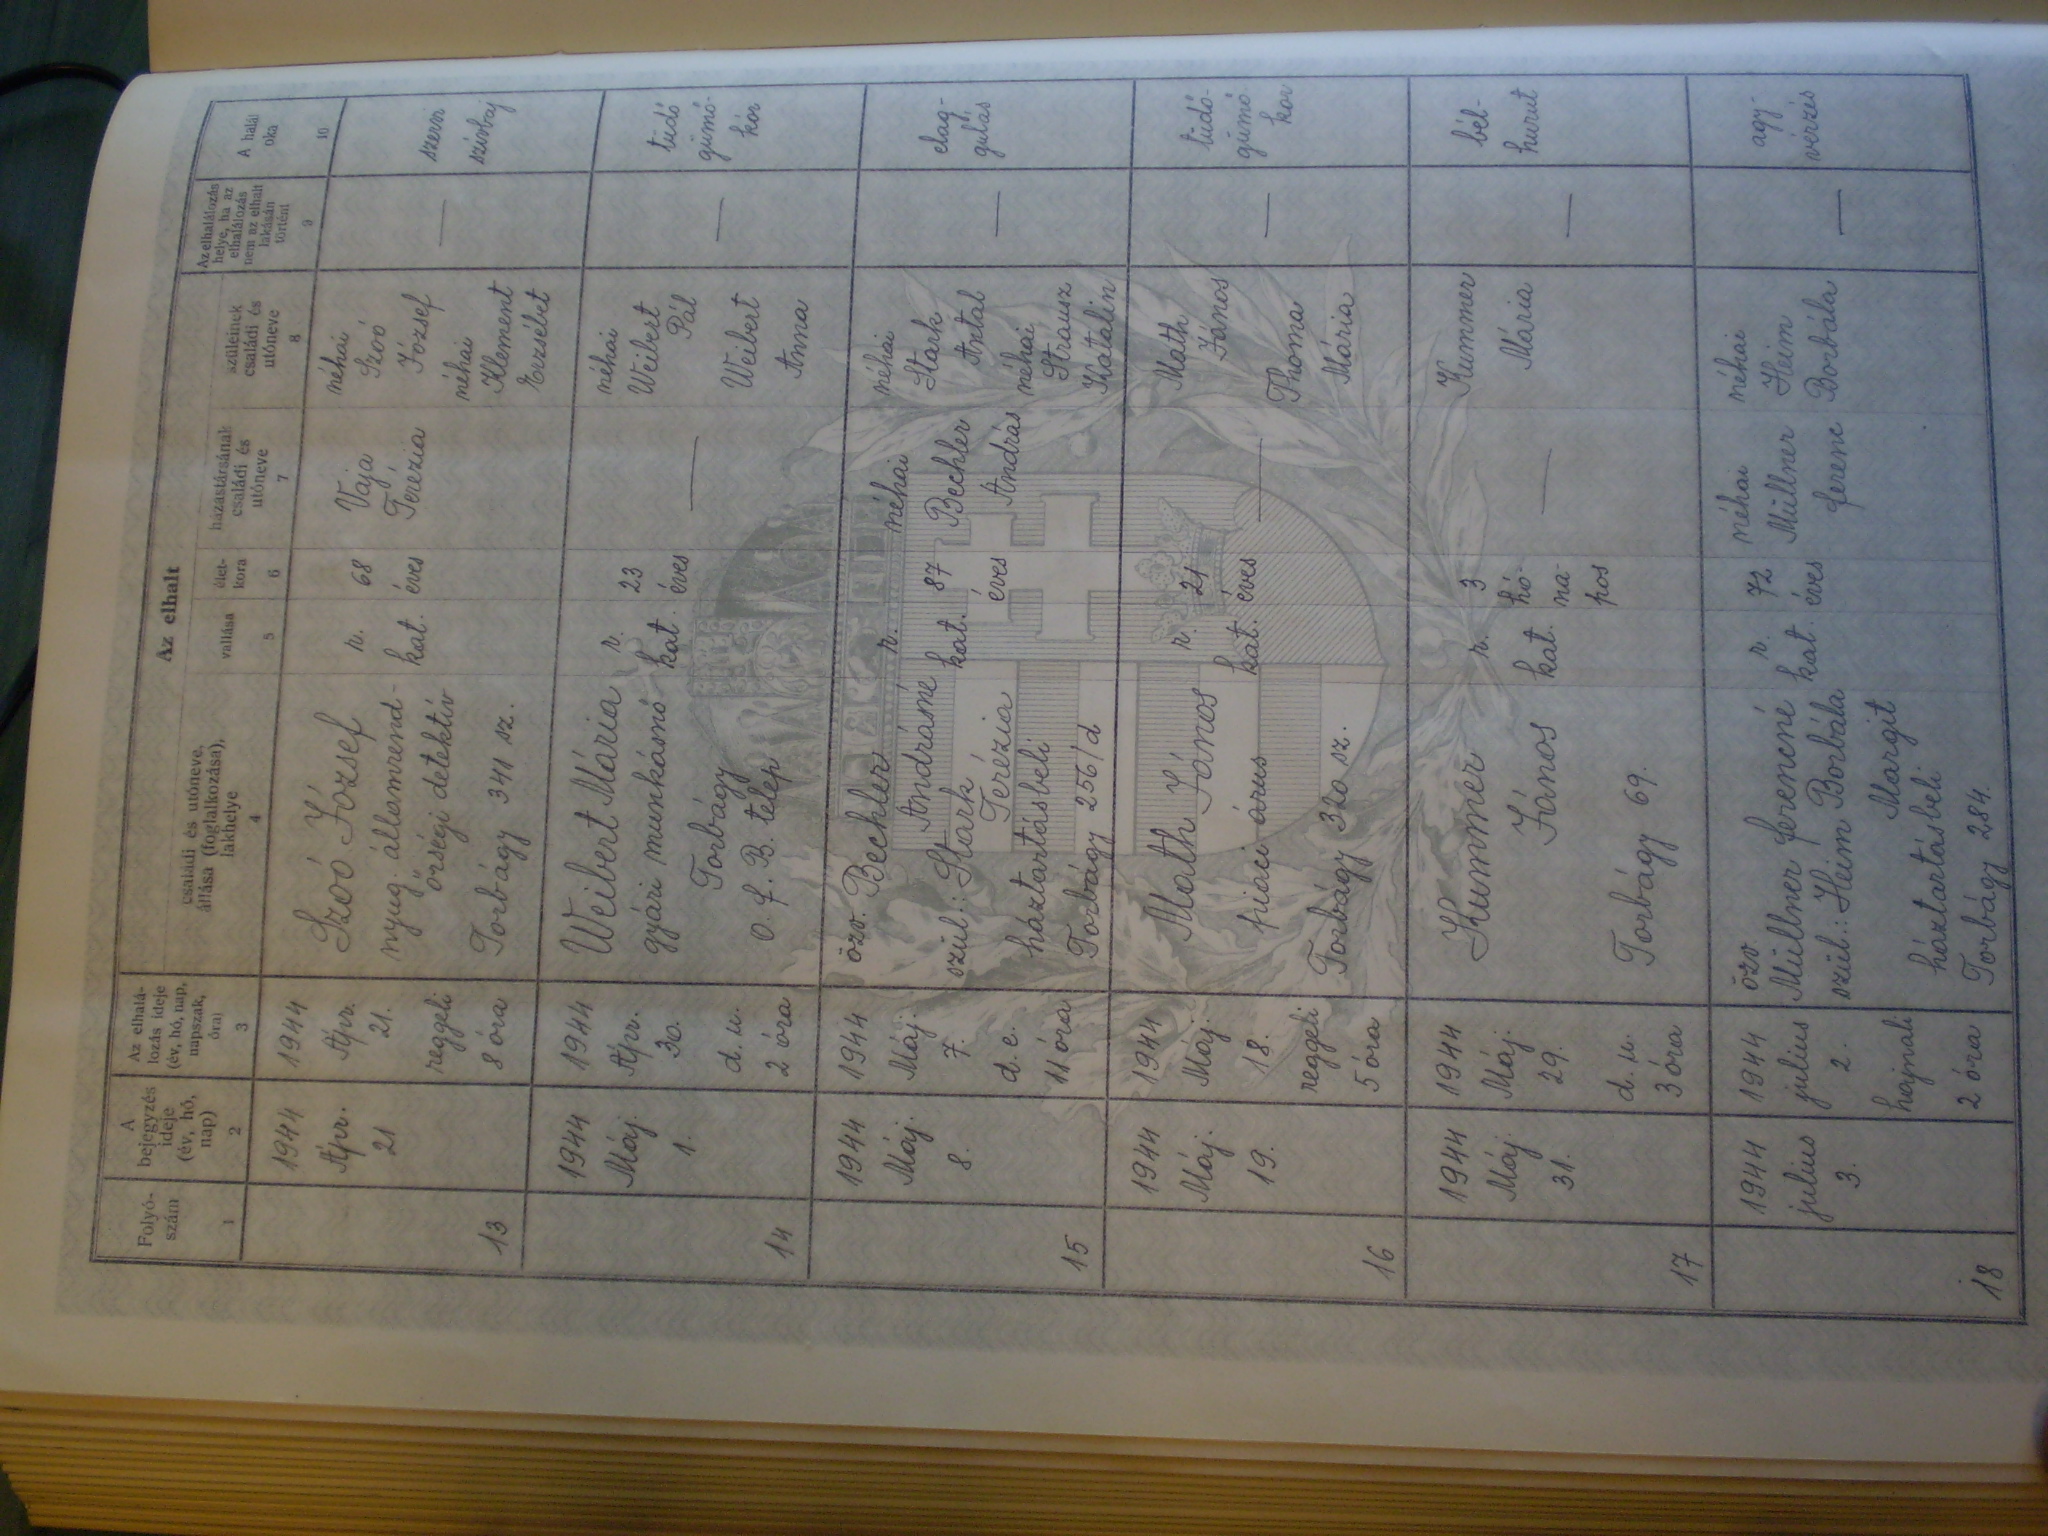 Az elhalt
Folyó-
szám
A
bejegyzés
ideje
(év, hó,
nap)
Az elhalá-
lozás ideje
(év, hó, nap,
napszak,
óra)
családi és utóneve,
állása (foglalkozása),
lakhelye
vallása
élet-
kora
házastársának
családi és
utóneve
szüleinek
családi és
utóneve
Az elhalálozás
helye, ha az
elhalálozás
nem az elhalt
lakásán
történt
A halál
oka
1
2
3
4
5
6
7
8
9
10
13
1944
Ápr.
21
1944
Ápr.
21.
reggeli
8 óra
Szoó József
nyug. államrend-
őrségi detektív
Torbágy 341 sz.
r.
kat.
68
éves
Vaja
Terézia
néhai
Szoó
József
néhai
Klement
Erzsébet
—
szervi
szívbaj
14
1944
Máj.
1.
1944
Ápr.
30.
d. u.
2 óra
Weibert Mária
gyári munkásnő
Torbágy
O. F. B. telep
r.
kat.
23
éves
—
néhai
Weibert
Pál
Weibert
Anna
—
tüdő
gümő-
kór
15
1944
Máj.
8.
1944
Máj.
7.
d. e.
11 óra
özv. Bechler
Andrásné
szül.: Stark
Terézia
háztartásbeli
Torbágy 256/d
r.
kat.
87
éves
néhai
Bechler
András
néhai
Stark
Antal
néhai
Strausz
Katalin
—
elag-
gulás
16
1944
Máj.
19.
1944
Máj.
18.
reggeli
5 óra
Math János
piaci árus
Torbágy 320 sz.
r.
kat.
21
éves
—
Math
János
Thoma
Mária
—
tüdő-
gümő-
kór
17
1944
Máj.
31.
1944
Máj.
29.
d. u.
3 óra
Kummer
János
Torbágy 69.
r.
kat.
3
hó-
na-
pos
—
Kummer
Mária
—
bél-
hurut
18
1944
július
3.
1944
július
2.
hajnali
2 óra
özv.
Müllner Ferencné
szül.: Heim Borbála
Margit
háztartásbeli
Torbágy 284.
r.
kat.
72
éves
néhai
Müllner
Ferenc
néhai
Heim
Borbála
—
agy-
vérzés